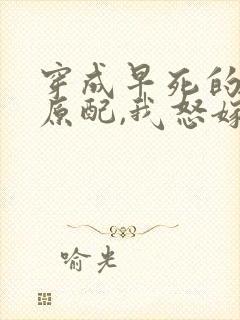 穿成早死的
原配,我怒嫁
喻光